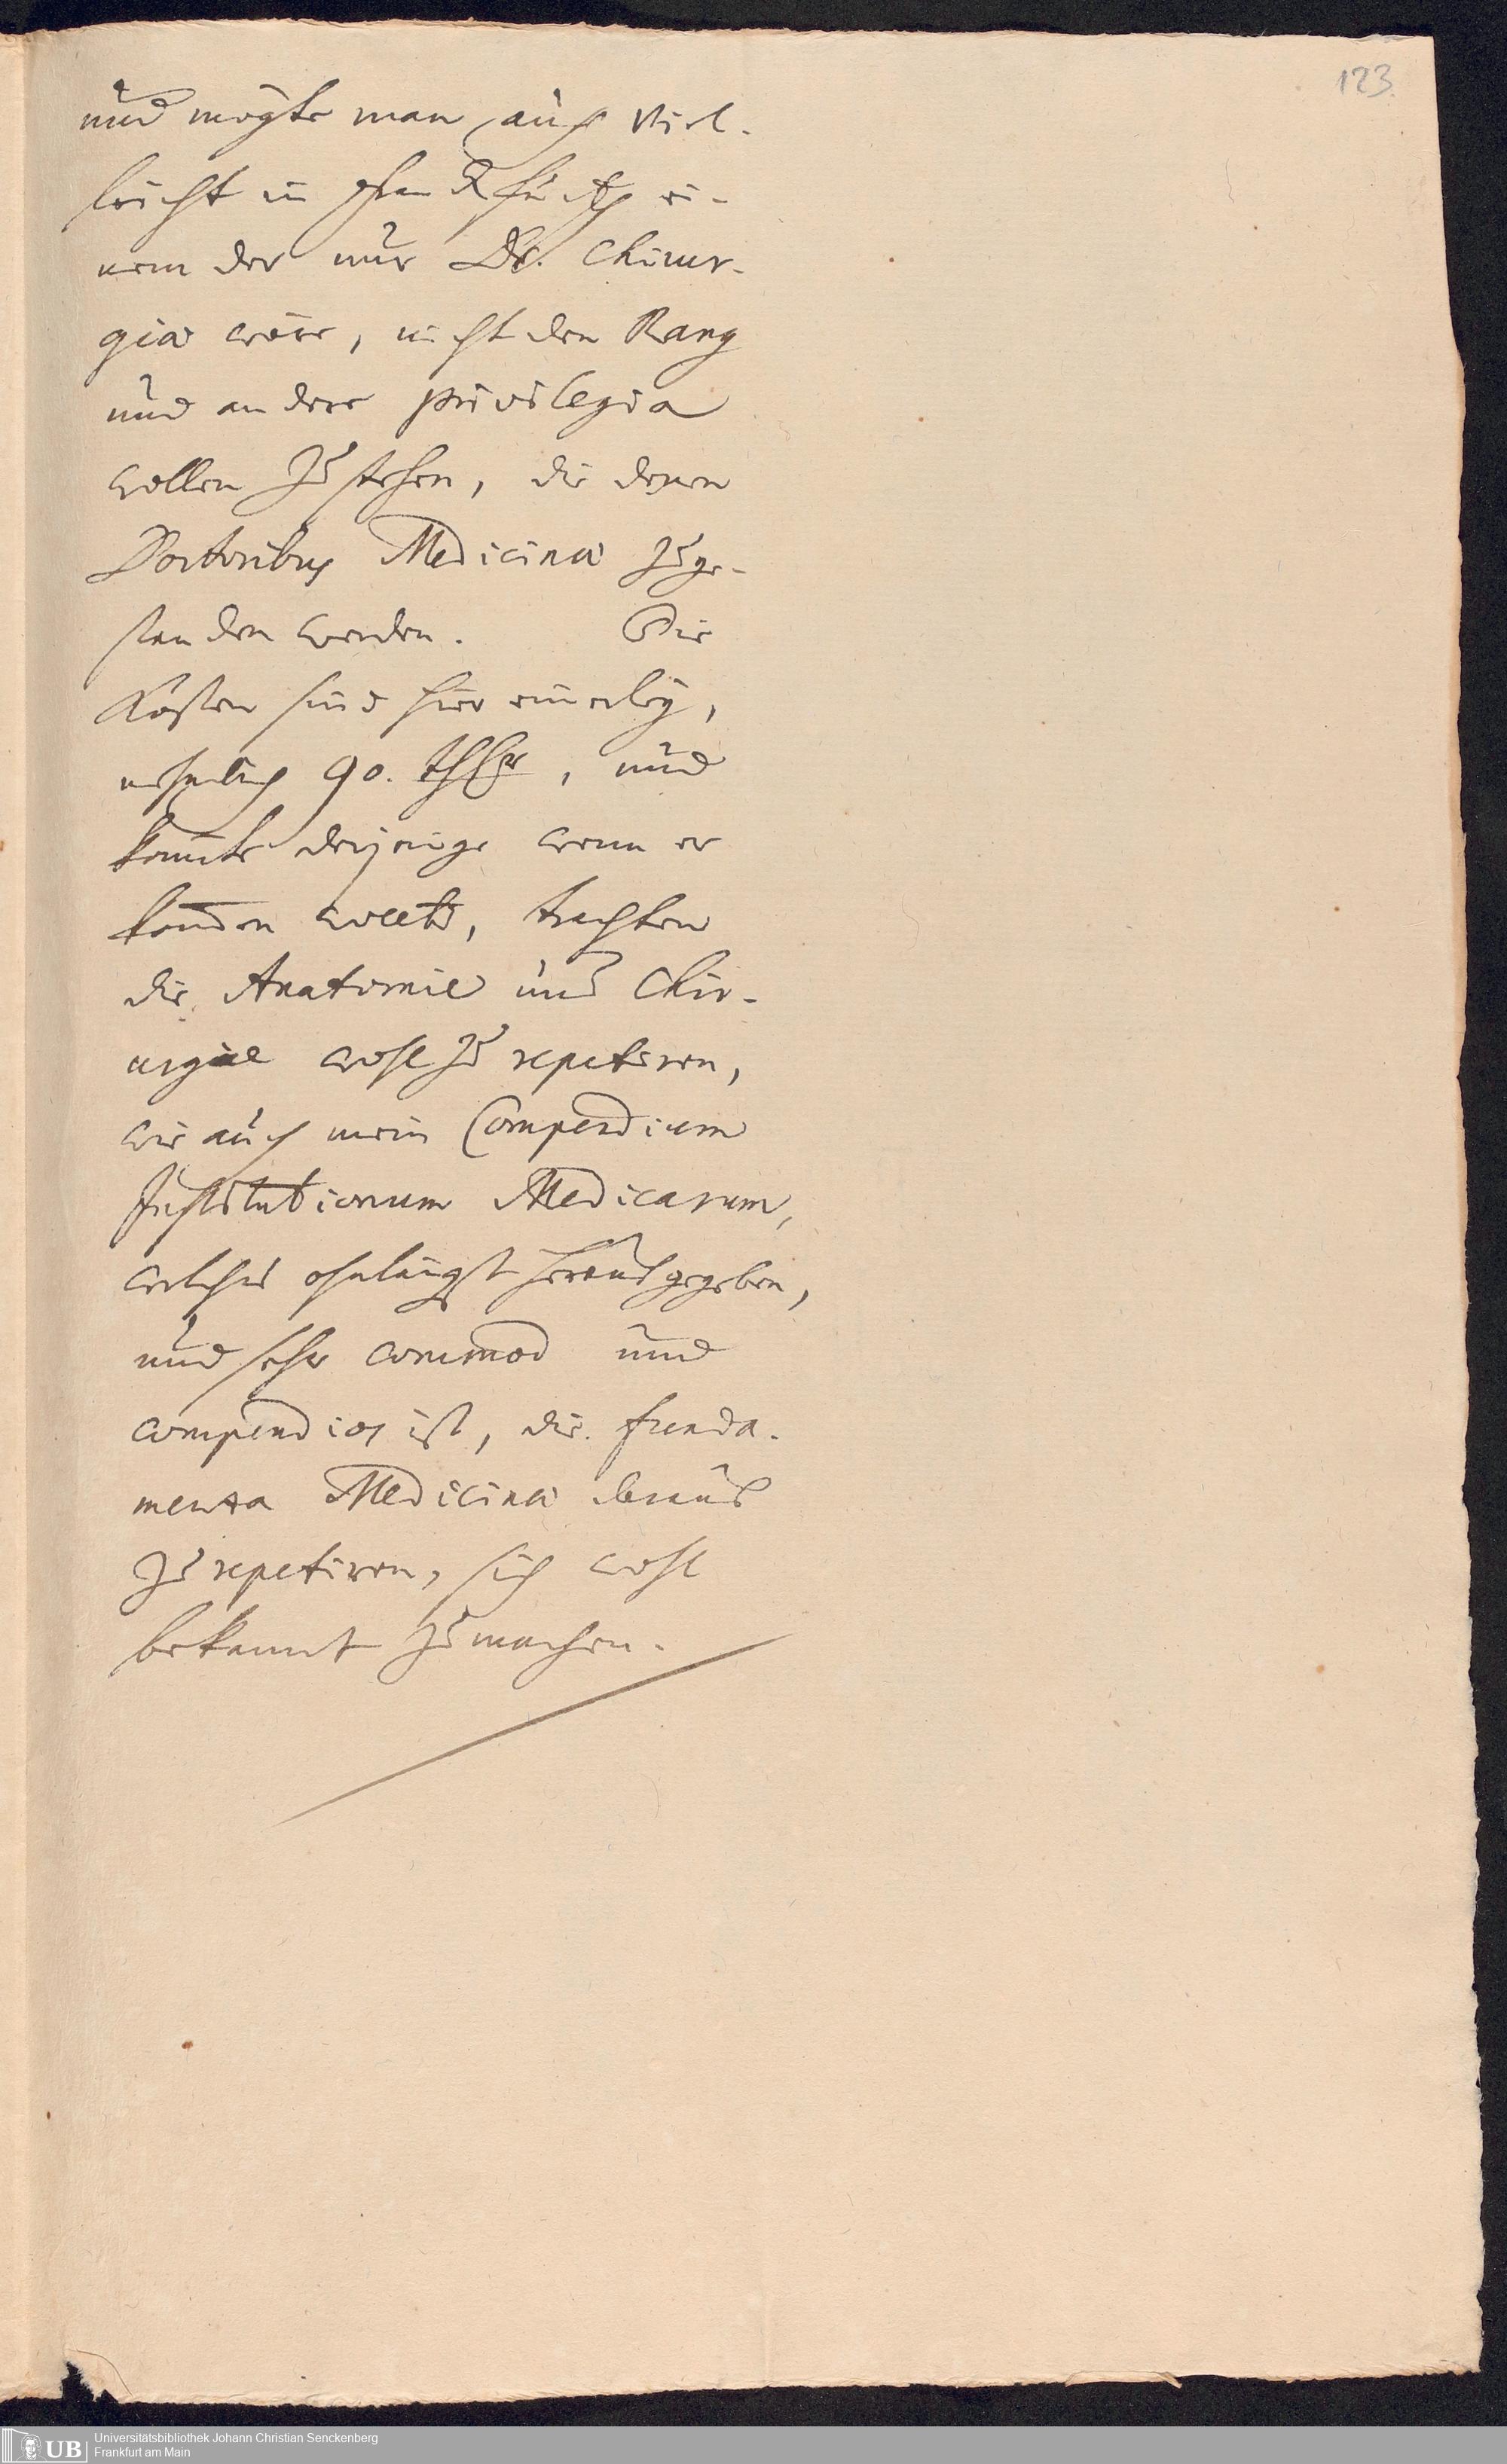 123.
und mögte man auch viel-
leicht in
nem der nur Dr. Chirur-
giae wäre, nicht den Rang
und andere privilegia
wollen zustehen, die denen
Doctoribus Medicinae zuge-
standen werden. Die
Kosten sind hier einerley,
nehmlich 90. thlr, und
könnte derjenige wenn er
kommen wollte, trachten
die Anatomie und Chir-
urgie wohl zu repetiren,
wie auch mein Compendium
Institutionum Medicarum,
welches ohnlängst herausgegeben,
und sehr commod und
compendios ist, die funda-
menta Medicinae daraus
zu repetiren, sich wohl
bekannt zu machen.
UB Universitätsbibliothek Johann Christian Senckenberg
Frankfurt am Main